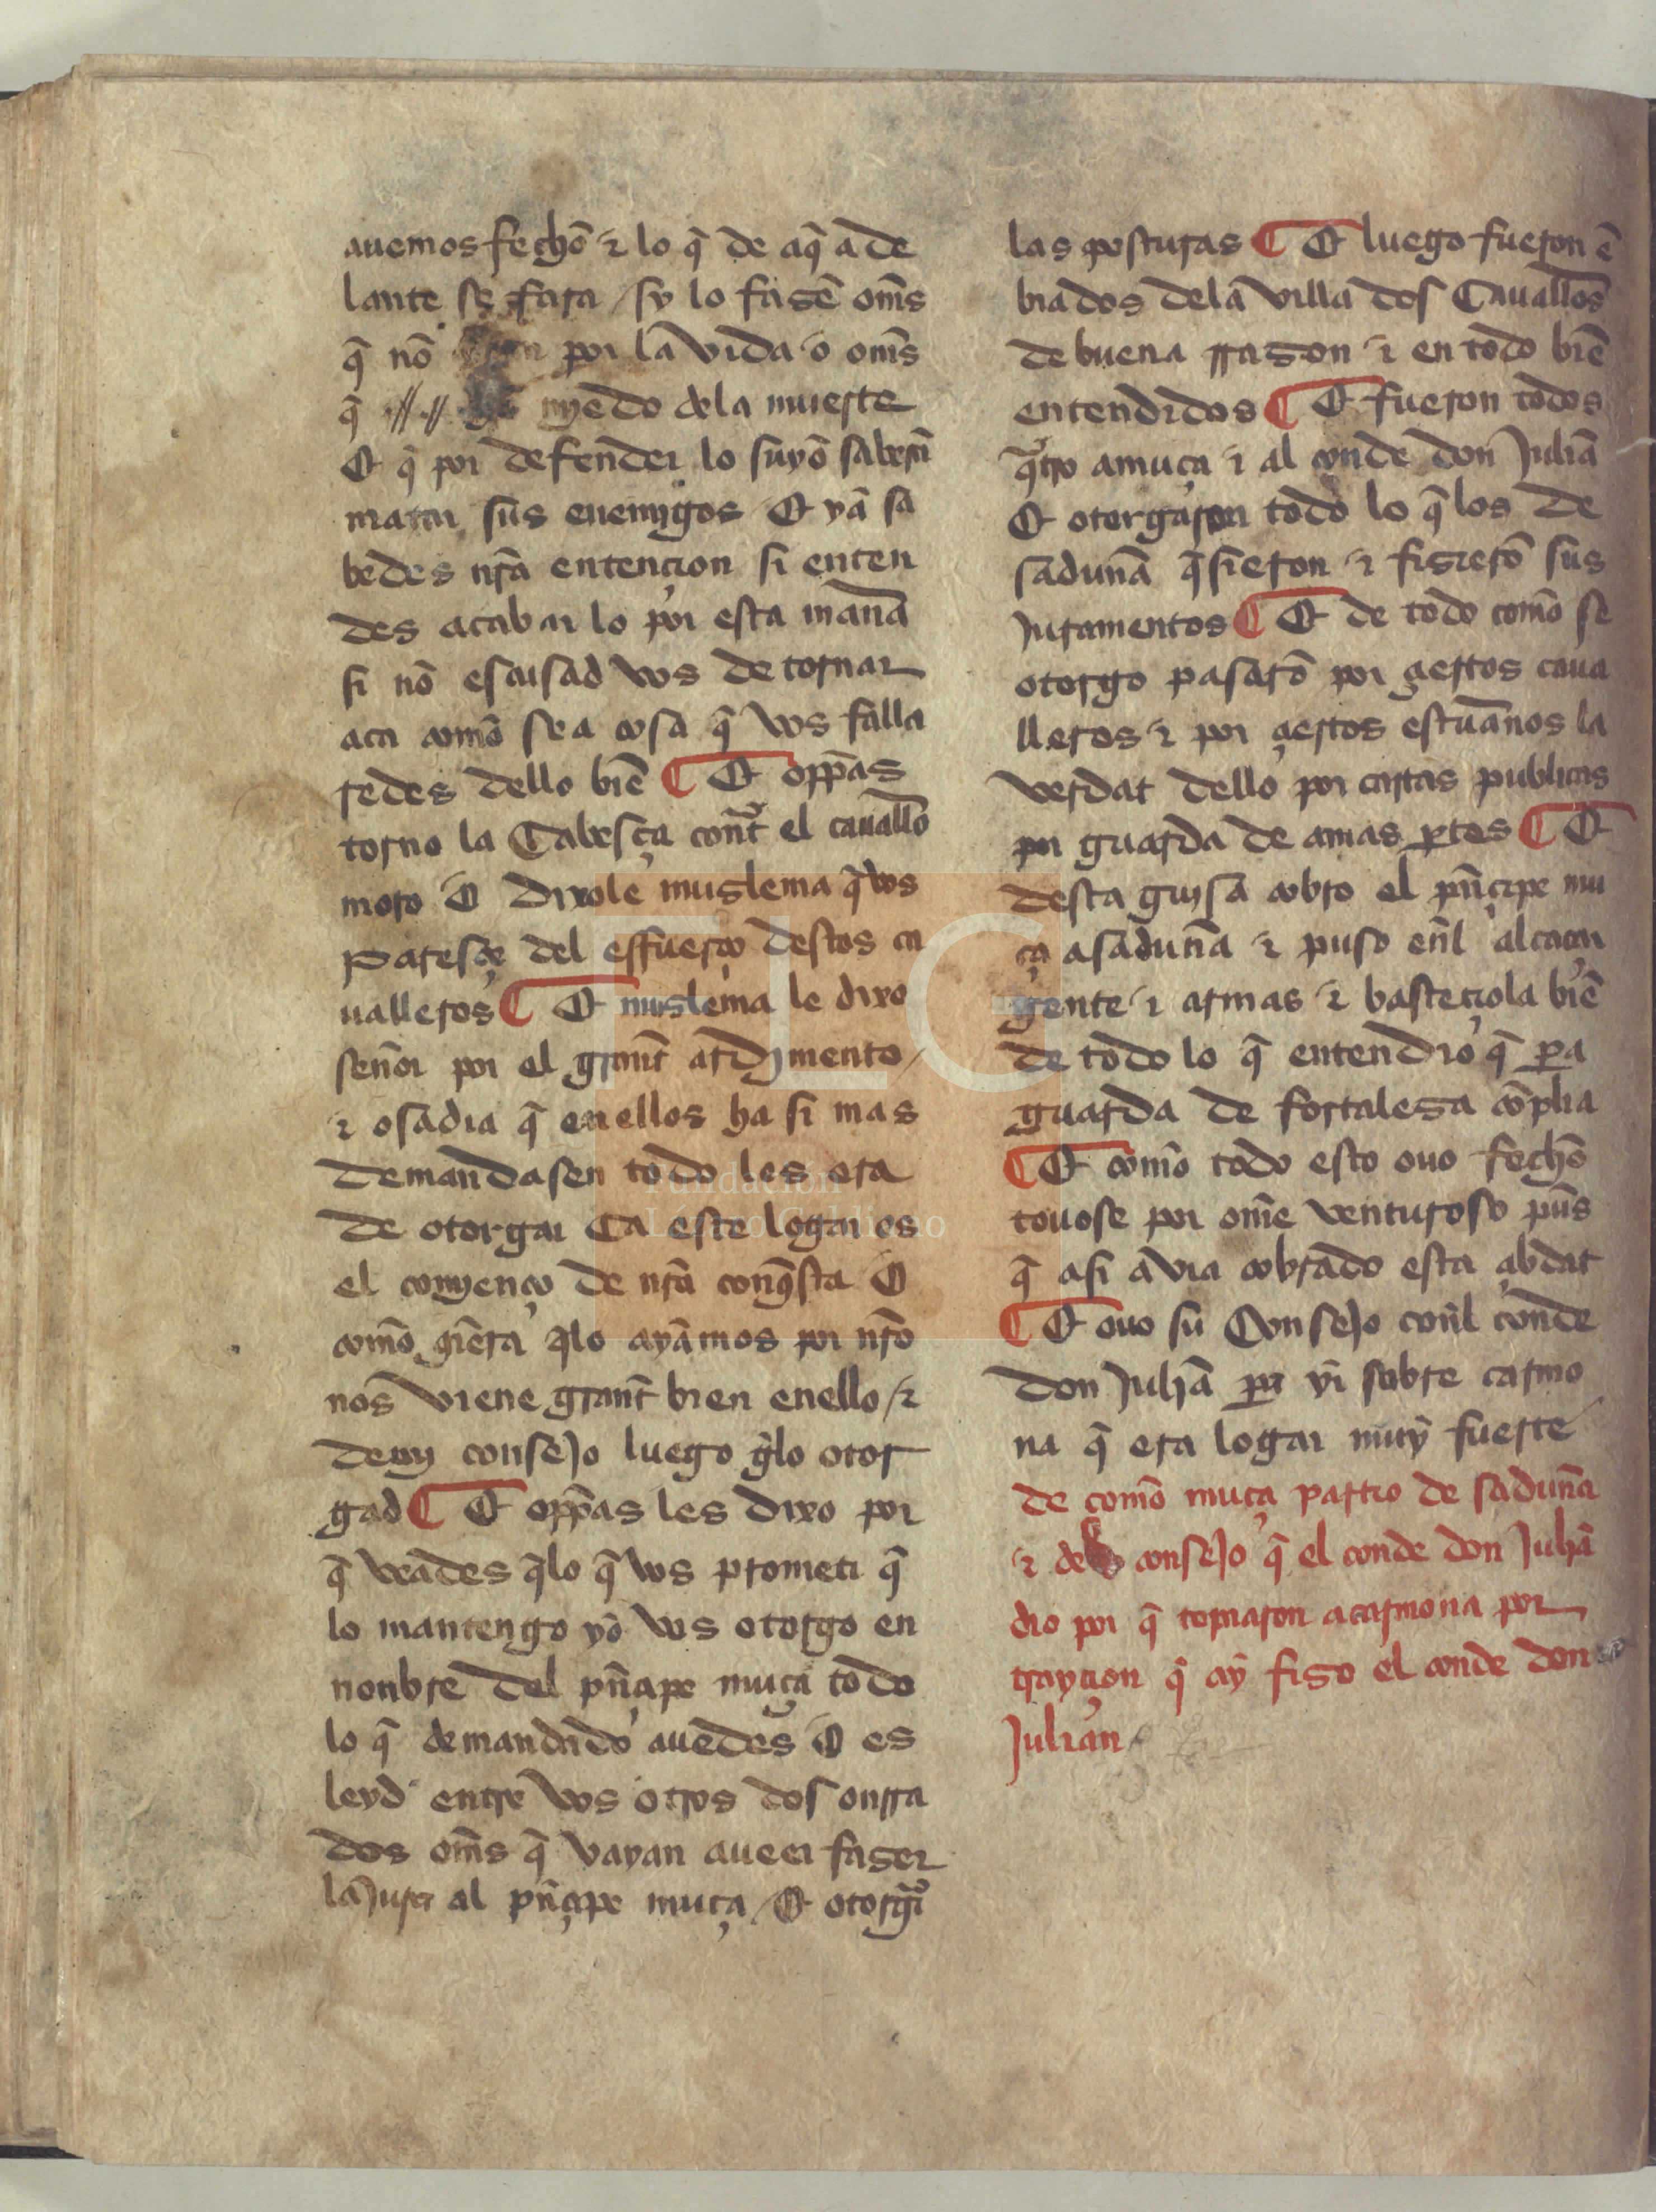 auemos fechõ ⁊ lo q̃ de aq̃ a de
lante se fara / sy lo fasẽ om̃s
q̃ nõ por la vida o om̃s
q̃ myedo dela muerte
Et q̃ por defender lo suyõ saberñ
matar sus enemygos Et yã sa
bedes nr̃a entençion si enten
des acabar lo por esta manã
si nõ escusad vos de tornar
aca comõ sea cosa q̃ vos falla
redes dello biẽ ¶ Et opp̃as
torno la Cabesça cont̃ el cauallõ
moro O dixole muslema q̃ vos
paresçe del esfuerço destos ca
ualleros ¶ Et muslema le dixo
señor por el grant̃ ardymento /
⁊ osadia q̃ enellos ha si mas
demandasen todo les era
de otorgar Ca este logar es
el comyenço de nr̃a conq̃sta O
comõ q̃era q̃lo ayãmos por nr̃o
nos viene grant̃ bien enello / ⁊
de my consejo luego q̃lo otor
gad ¶ Et opp̃as les dixo por
q̃ veades q̃lo q̃ vos prometi q̃
lo mantengo yo vos otorgo en
nonbre del pñçipe muça todo
lo q̃ demandado auedes O es
leyd entre vos otros dos onrra
dos om̃s q̃ vayan a ueer faser
la jura al pñçipe muça / Et otorgar
las posturas ¶ Et luego fueron ẽ
biados dela villa dos Cauallos̃
de buena rrason ⁊ en todo biẽ
entendidos ¶ Et fueron todos
q̃tro amuça ⁊ al conde don Juliã
Et otorgaron todo lo q̃ los de
sadunã q̃sieron ⁊ fisierõ sus
juramentos ¶ Et de todo comõ se
otorgo pasarõ por çiertos caua
lleros ⁊ por çiertos escriuanos la
verdat dello por cartas publicas
por guarda de amas p̃tes ¶ Et
desta guisa cobro el pñçipe mu
ça asadunã ⁊ puso enl̃ alcaçar
gente ⁊ armas ⁊ basteçiola biẽ
de todo lo q̃ entendio q̃ p̃a
guarda de fortalesa cõplia
¶ Et comõ todo esto ouo fechõ
touose por om̃e venturoso pũs
q̃ asi avia cobrado esta çibdat
¶ Et ouo su Consejo conl̃ conde
don Juliã p̃a yr sobre carmo
na q̃ era logar muy fuerte
de comõ muça partio de sadunã
⁊ del consejo q̃ el conde don Juliã
dio por q̃ tomaron a carmona por
trayçion q̃ ay fiso el conde don
Julian